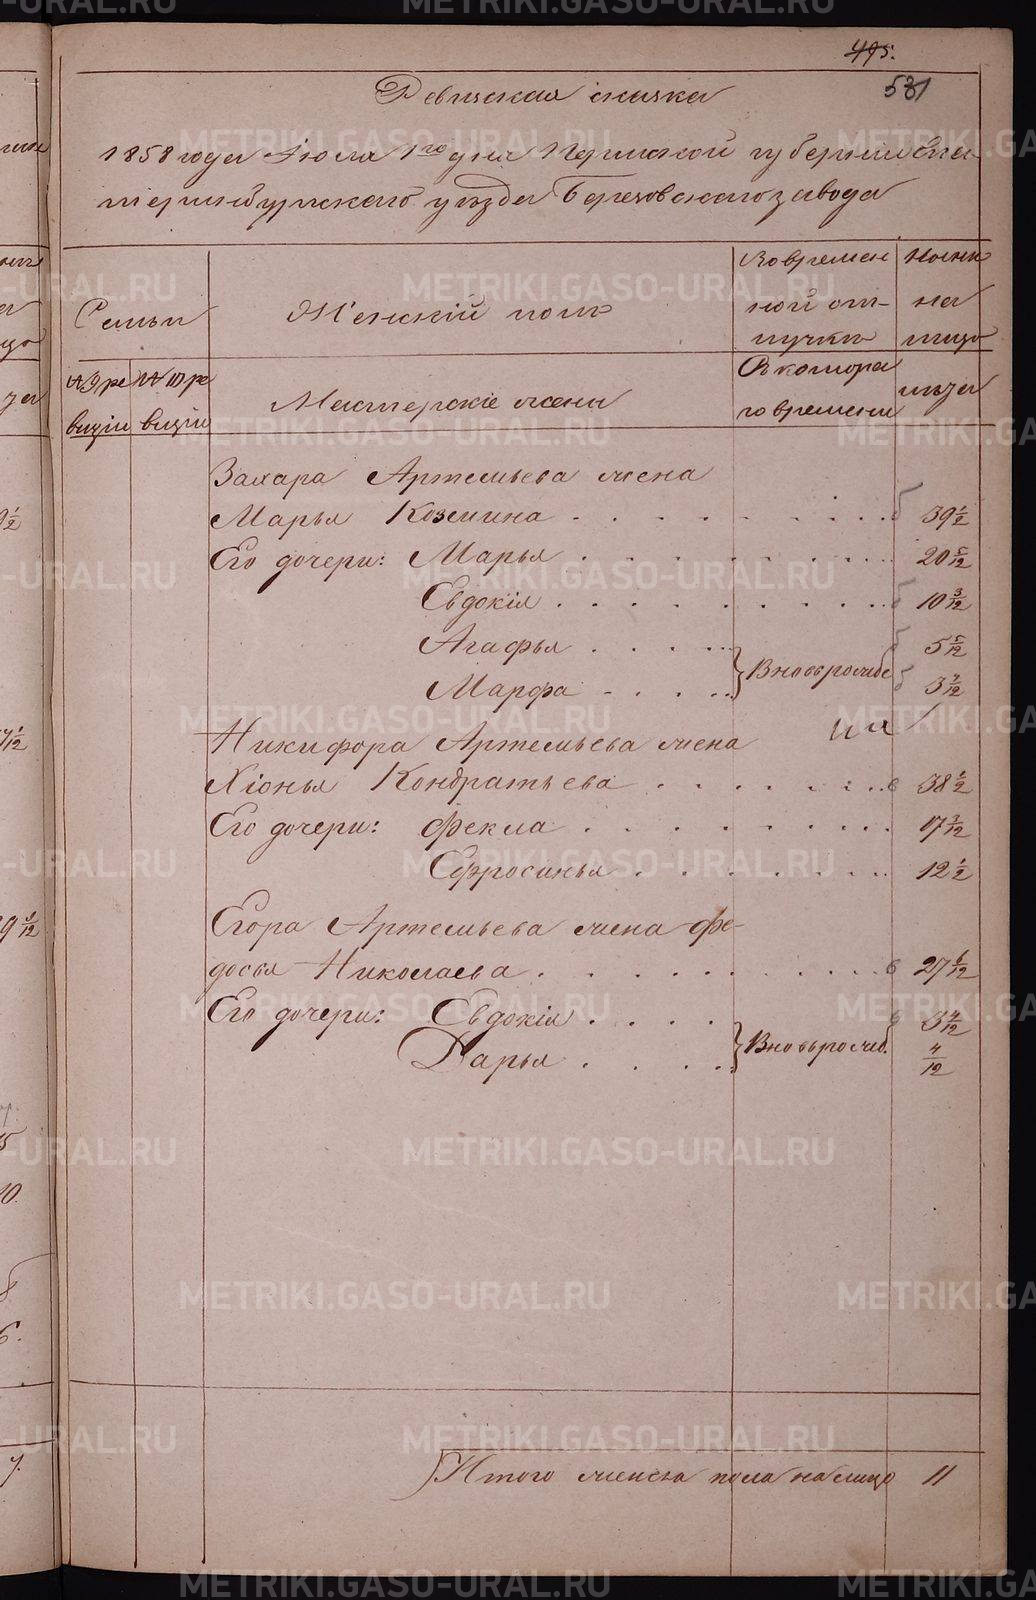 495.
531
Ревизская сказка
1858 года Июля 1го дня Пермской губернии Ека-
теринбургского уезда Березовского завода
Семьи
Женскiй полъ
Во времен
ной от-
лучкѣ
Нынѣ
на
лицо
№ 9 ре
визiи
№ 10 ре
визiи
Мастерскiе жены
В котора
го времени
лѣта
Захара Артемьева жена
Марья Козмина . . . . . . . . . 39 1/2
Его дочери: Марья . . . . . . . . 20 5/12
Евдокiя . . . . . . . . . 10 3/12
Агафья . . . . 5 5/12
Вновьрожде
Марфа . . . . 3 7/12
ны
Никифора Артемьева жена
Хiонья Кондратьева . . . . . . . 38 1/2
Его дочери: Фекла . . . . . . . . 17 3/12
Ефросинья . . . . . . . 12 1/2
Егора Артемьева жена Фе-
досья Николаева . . . . . . . . . 27 6/12
Его дочери: Евдокiя . . . . 3 4/12
Вновьрожд.
Дарья . . . . 4/12
Итого женска пола налицо 11
METRIKI.GASO-URAL.RU